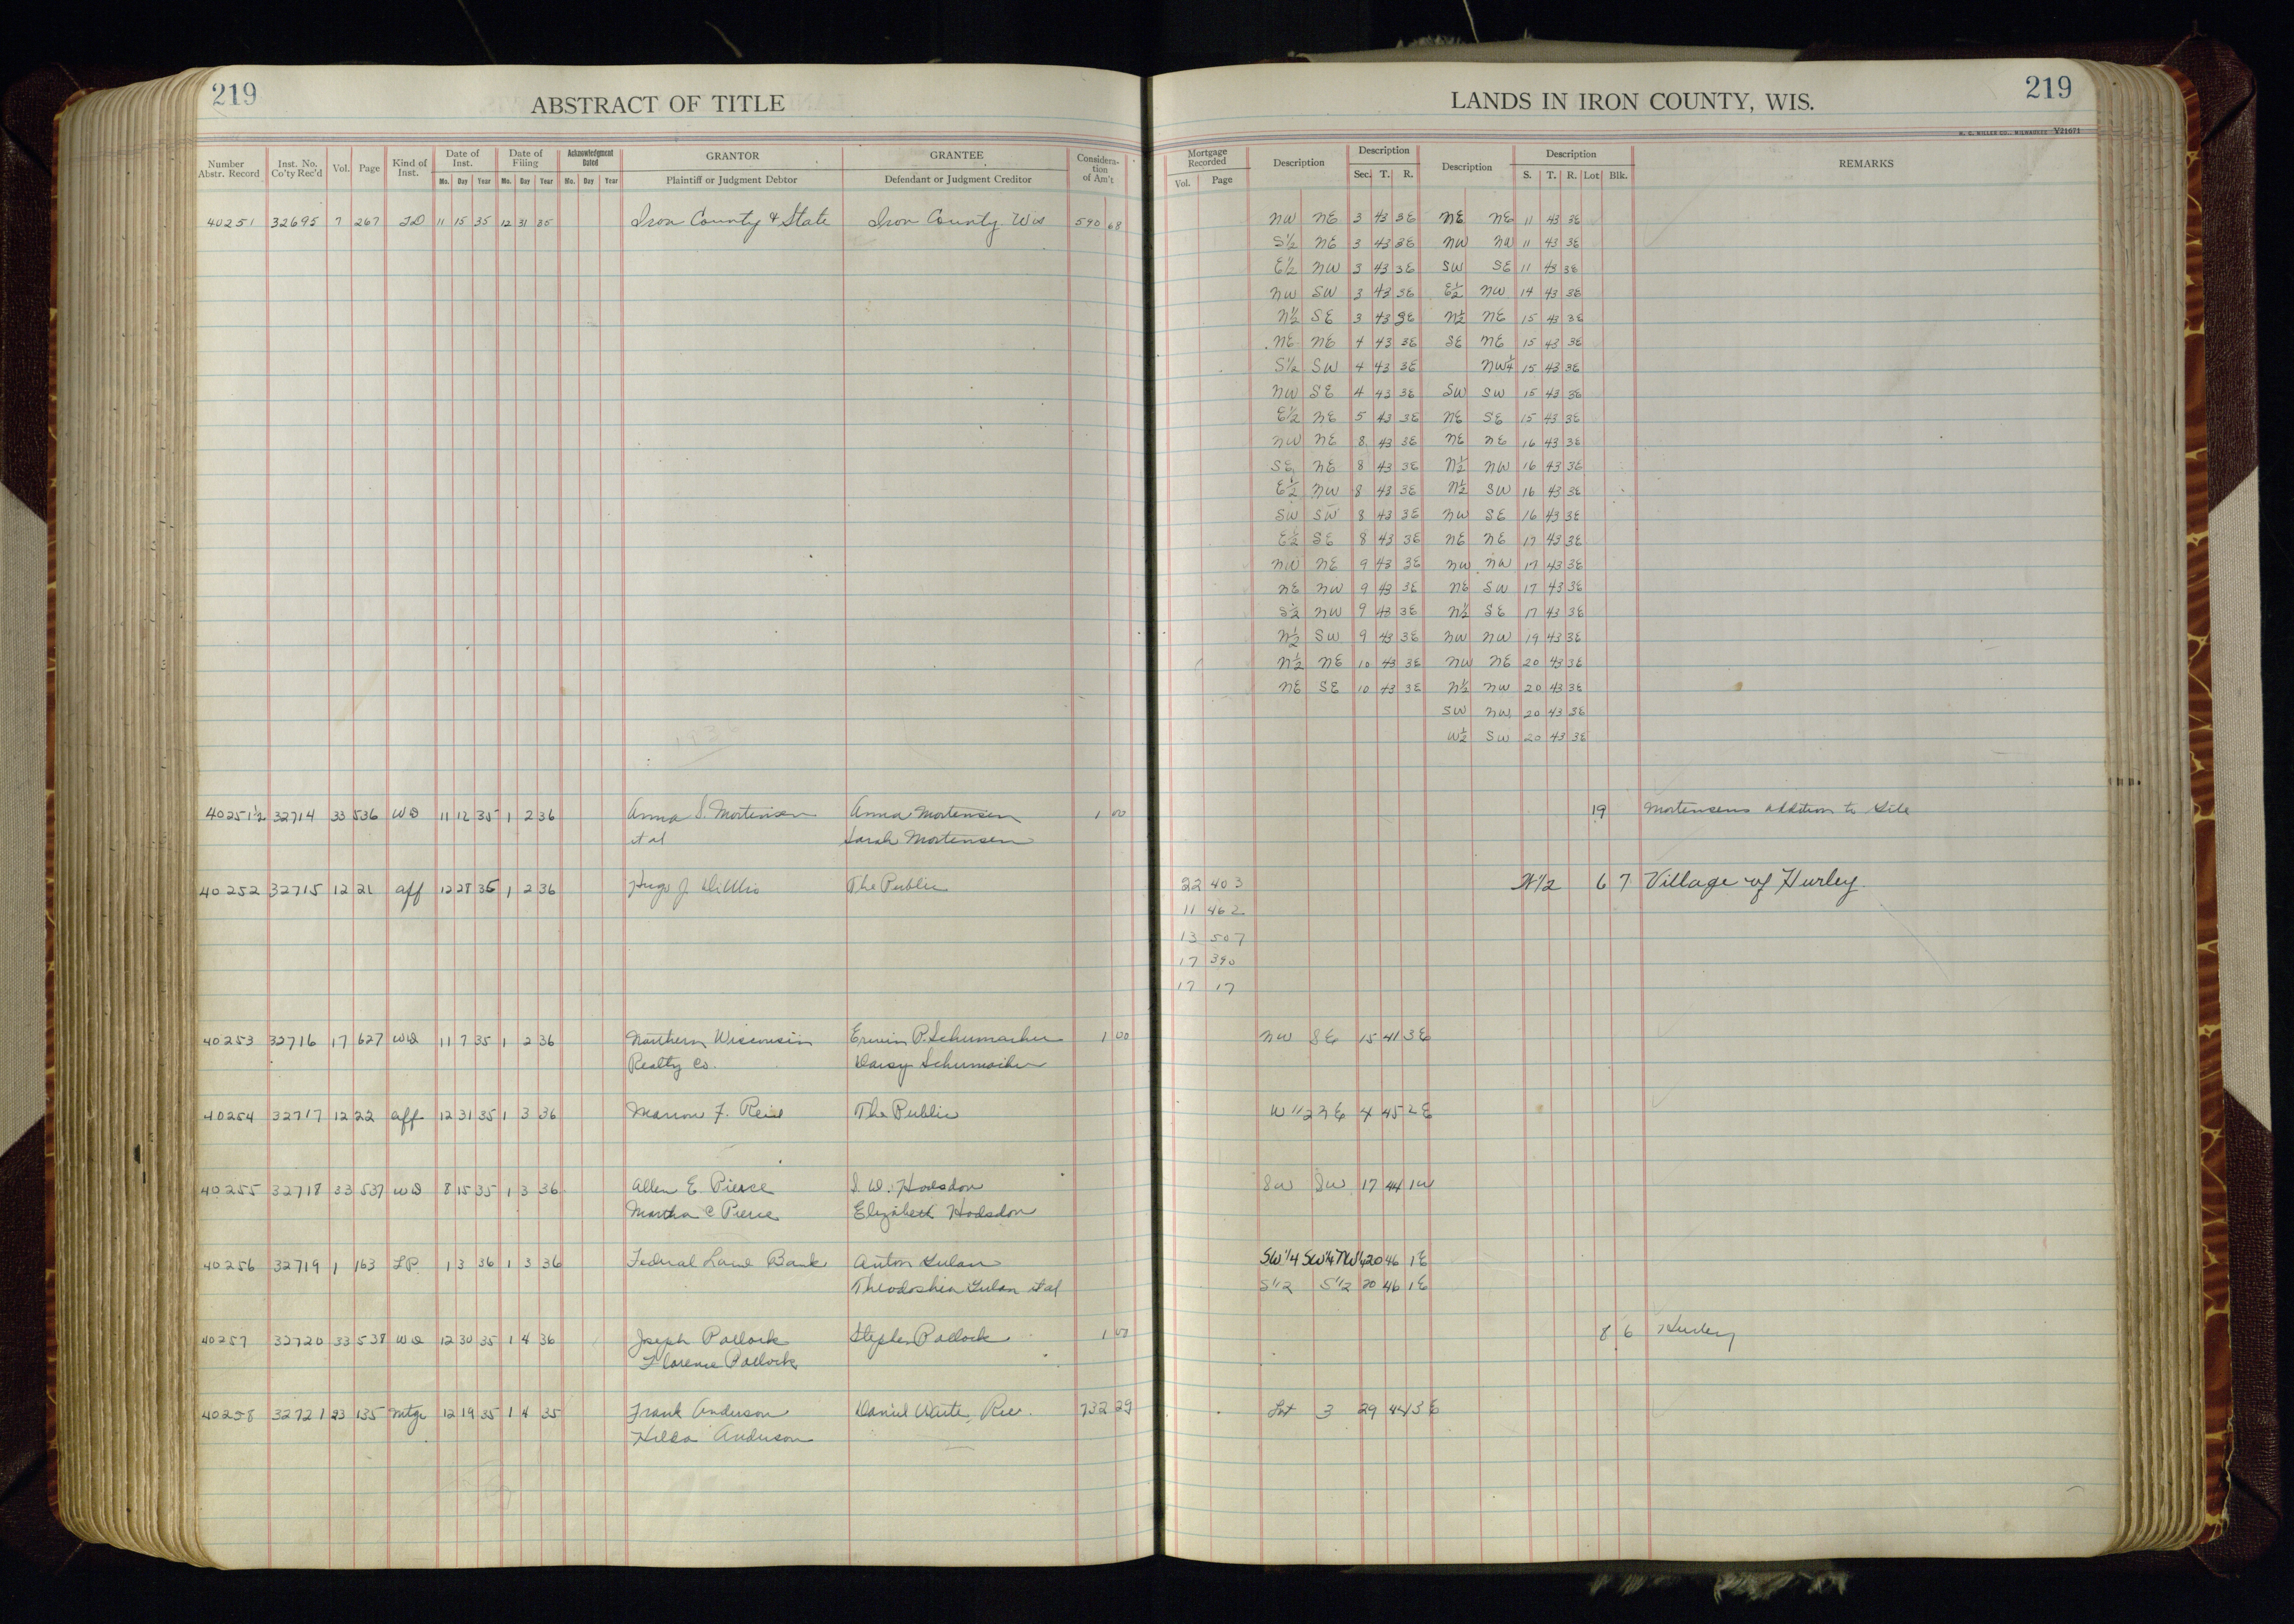 219
ABSTRACT OF TITLE
Number Abstr. Record Inst. No. Co'ty Rec'd Vol. Page Kind of Inst. Date of Inst. Mo. Day Year Date of Filing Mo. Day Year Acknowledgment Dated Mo. Day Year GRANTOR Plaintiff or Judgment Debtor GRANTEE Defendant or Judgment Creditor Consideration of Am't
40251 32695 7 267 TD 11 15 35 12 31 35 Iron County & State Iron County Wis 590 68
40251½ 32714 33 536 WD 11 12 35 1 2 36 Anna S. Mortensen Anna Mortensen 1 00
et al Sarah Mortensen
40252 32715 12 21 aff 12 28 35 1 2 36 Hugo J. The Public
40253 32716 17 627 WD 11 7 35 1 2 36 Northern Wisconsin Erwin P. Schumacher 1 00
Realty Co. Daisy Schumacher
40254 32717 12 22 aff 12 31 35 1 3 36 Marion F. Reid The Public
40255 32718 33 537 WD 8 15 35 1 3 36 Allen E. Pierce S. W. Hodsdon
Martha C Pierce Elizabeth Hodsdon
40256 32719 1 163 LP 1 3 36 1 3 36 Federal Land Bank Anton Gulan
Theodoshia Gulan et al
40257 32720 33 538 WD 12 30 35 1 4 36 Joseph Pollock Stephen Pollock 1 00
Florence Pollock
40258 32721 23 135 mtge 12 19 35 1 4 35 Frank Anderson Daniel Waite, Rec. 732 29
Hilda Anderson
LANDS IN IRON COUNTY, WIS.
219
H. C. MILLER CO., MILWAUKEE V21671
Mortgage Recorded Vol. Page Description Description Sec. T. R. Description Description S. T. R. Lot Blk. REMARKS
NW NE 3 43 3E NE NE 11 43 3E
S½ NE 3 43 3E NW NW 11 43 3E
E½ NW 3 43 3E SW SE 11 43 3E
NW SW 3 43 3E E½ NW 14 43 3E
N½ SE 3 43 3E N½ NE 15 43 3E
NE NE 4 43 3E SE NE 15 43 3E
S½ SW 4 43 3E NW¼ 15 43 3E
NW SE 4 43 3E SW SW 15 43 3E
E½ NE 5 43 3E NE SE 15 43 3E
NW NE 8 43 3E NE NE 16 43 3E
SE NE 8 43 3E N½ NW 16 43 3E
E½ NW 8 43 3E N½ SW 16 43 3E
SW SW 8 43 3E NW SE 16 43 3E
E½ SE 8 43 3E NE NE 17 43 3E
NW NE 9 43 3E NW NW 17 43 3E
NE NW 9 43 3E NE SW 17 43 3E
S½ NW 9 43 3E N½ SE 17 43 3E
N½ SW 9 43 3E NW NW 19 43 3E
N½ NE 10 43 3E NW NE 20 43 3E
NE SE 10 43 3E N½ NW 20 43 3E
SW NW 20 43 3E
W½ SW 20 43 3E
19 Mortensens addition to Gile
22 403 N½ 6 7 Village of Hurley
11 462
13 507
17 390
17 17
NW SE 15 41 3E
W 1/2 NE 4 45 2E
SW SW 17 44 1W
SW¼ SW¼ NW¼ 20 46 1E
S 1/2 S 1/2 20 46 1E
8 6 Hurley
Lot 3 29 44 3E